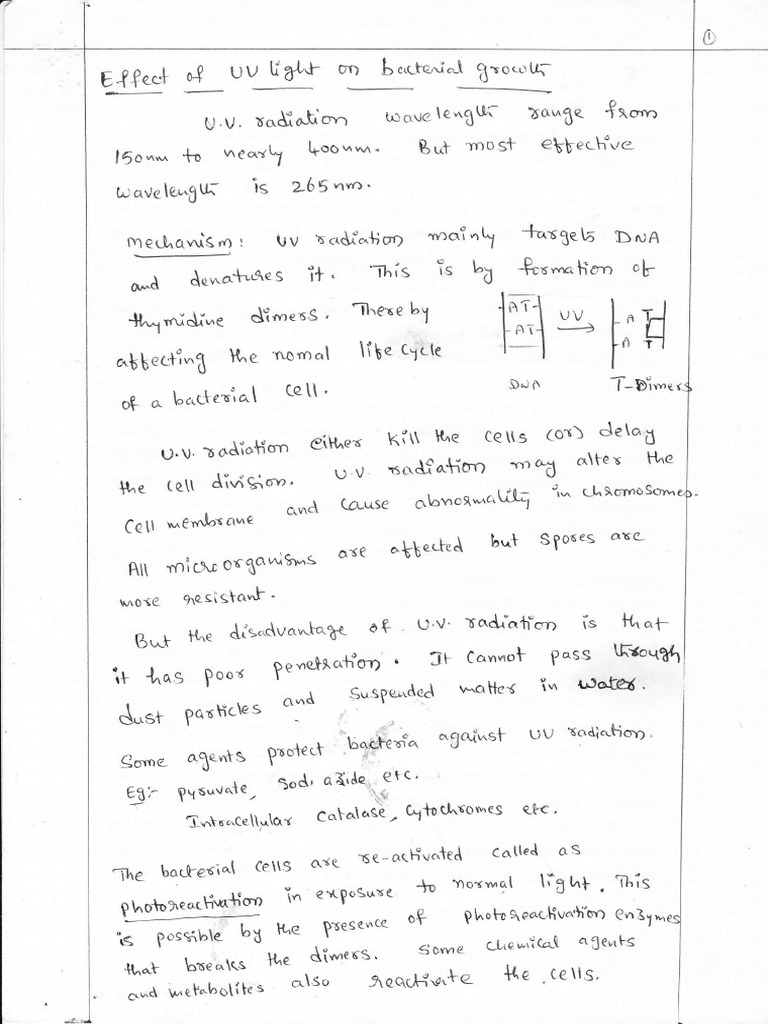 ①
Effect of UV light on bacterial growth
U.V. radiation wavelength range from
150nm to nearly 400nm. But most effective
wavelength is 265nm.
Mechanism: UV radiation mainly targets DNA
and denatures it. This is by formation of
thymidine dimers. There by
affecting the nomal life cycle
of a bacterial cell.
AT
AT
DNA
UV
A T
A T
T-Dimers
U.V. radiation either kill the cells (or) delay
the cell division. U.V. radiation may alter the
cell membrane and cause abnormality in chromosomes.
All microorganisms are affected but spores are
more resistant.
But the disadvantage of U.V. radiation is that
it has poor penetration. It cannot pass through
dust particles and suspended matter in water.
Some agents protect bacteria against UV radiation.
Eg:- pyruvate, Sod. azide etc.
Intracellular Catalase, Cytochromes etc.
The bacterial cells are re-activated called as
photoreactivation in exposure to normal light. This
is possible by the presence of photoreactivation enzymes
that breaks the dimers. Some chemical agents
and metabolites also reactivate the cells.